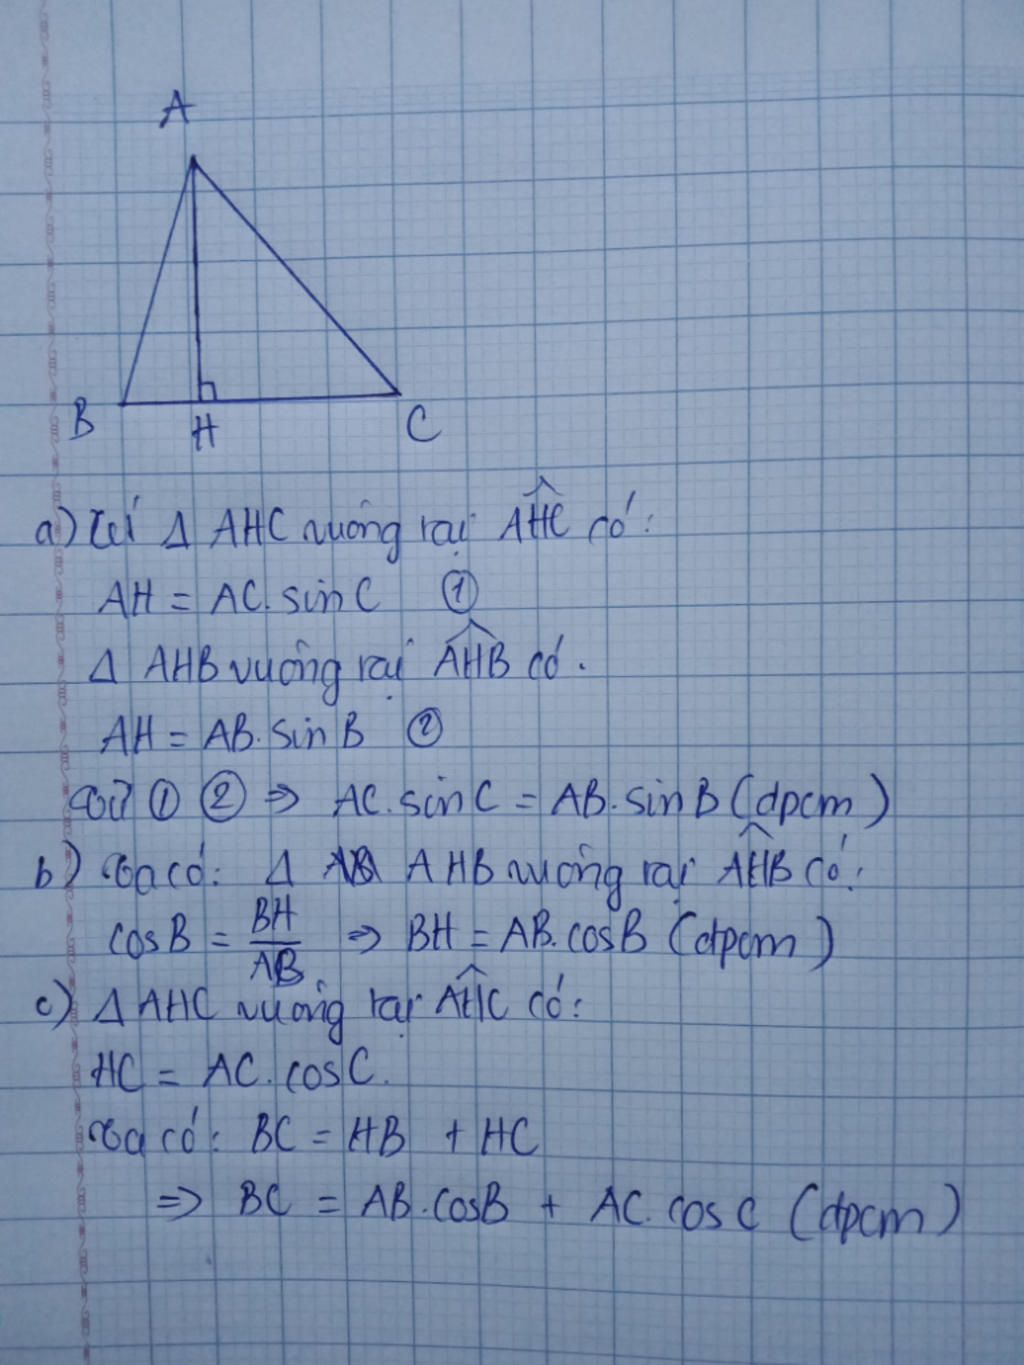 A
B
H
C
a) Xét Δ AHC vuông tại AHC có:
AH = AC. sin C ①
Δ AHB vuông tại AHB có.
AH = AB. sin B ②
Từ ① ② => AC. sin C = AB. sin B (đpcm)
b) Ta có: Δ AHB vuông tại AHB có:
cos B = BH/AB => BH = AB. cos B (đpcm)
c) Δ AHC vuông tại AHC có:
HC = AC. cos C.
Ta có: BC = HB + HC
=> BC = AB. cos B + AC. cos C (đpcm)